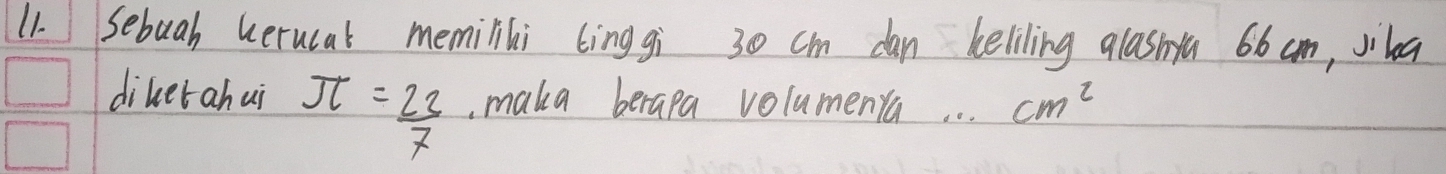 11. Sebuah kerucut memiliki tinggi 30 cm dan keliling alasnya 66 cm, jika
diketahui π = 22/7, maka berapa volumenya ... cm²